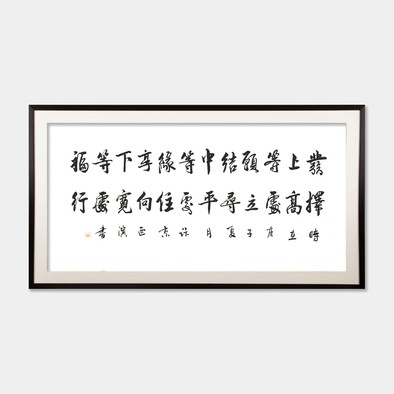 發上等願結中等緣享下等福
擇高處立尋平處住向寬處行
時在庚子夏月 書